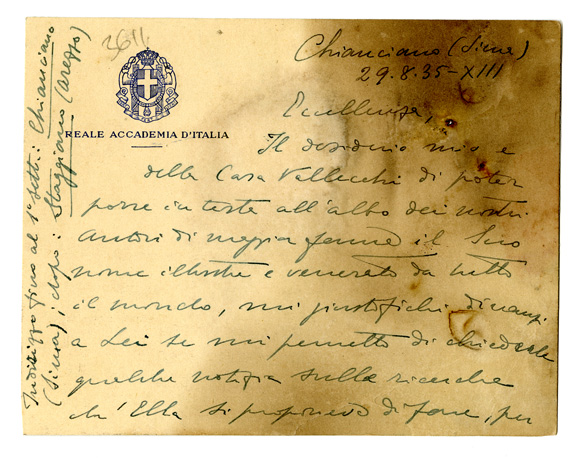 3611
Chianciano (Siena)
29.8.35-XIII
REALE ACCADEMIA D'ITALIA
Eccellenza,
Il desiderio mio e
della Casa Vallecchi di poter
porre in testa all'albo dei nostri
autori di maggior fama il Suo
nome illustre e venerato da tutto
il mondo, mi giustifichi dinanzi
a Lei se mi permetto di chiederle
qualche notizia sulle ricerche
ch'Ella si proponeva di fare, per
Indirizzo fino al 1° sett.: Chianciano
(Siena); dopo: Staggiano (Arezzo)